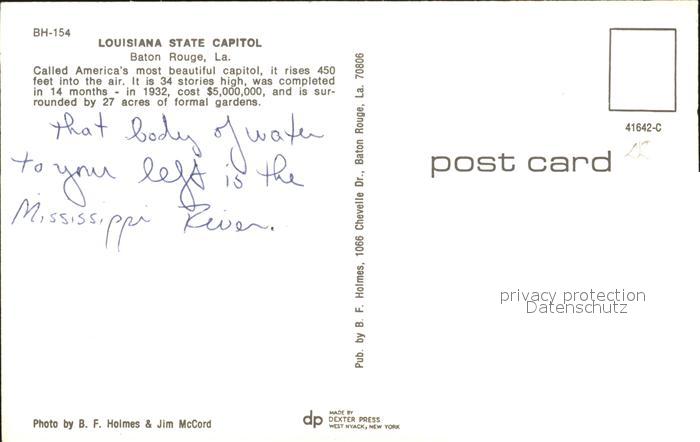 BH-154
LOUISIANA STATE CAPITOL
Baton Rouge, La.
Called America's most beautiful capitol, it rises 450
feet into the air. It is 34 stories high, was completed
in 14 months - in 1932, cost $5,000,000, and is sur-
rounded by 27 acres of formal gardens.
that body of water
to your left is the
Mississippi River.
Photo by B. F. Holmes & Jim McCord
Pub. by B. F. Holmes, 1066 Chevelle Dr., Baton Rouge, La. 70806
dp
MADE BY
DEXTER PRESS
WEST NYACK, NEW YORK
41642-C
post card
privacy protection
Datenschutz